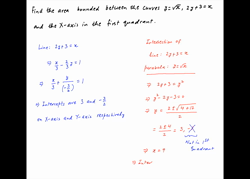 Find the area bounded between the curves y=√x, 2y+3=x
and the X-axis in the first quadrant.
Line: 2y+3=x
⇒ x/3 - 2/3 y = 1
⇒ x/3 + y/(-3/2) = 1
⇒ Intercepts are 3 and -3/2
on X-axis and Y-axis respectively
Intersection of
line: 2y+3=x
parabola: y=√x
⇒ 2y+3 = y²
⇒ y²-2y-3=0
⇒ y =
= 3,
Not in 1st
Quadrant
⇒ x=9
⇒ Inter